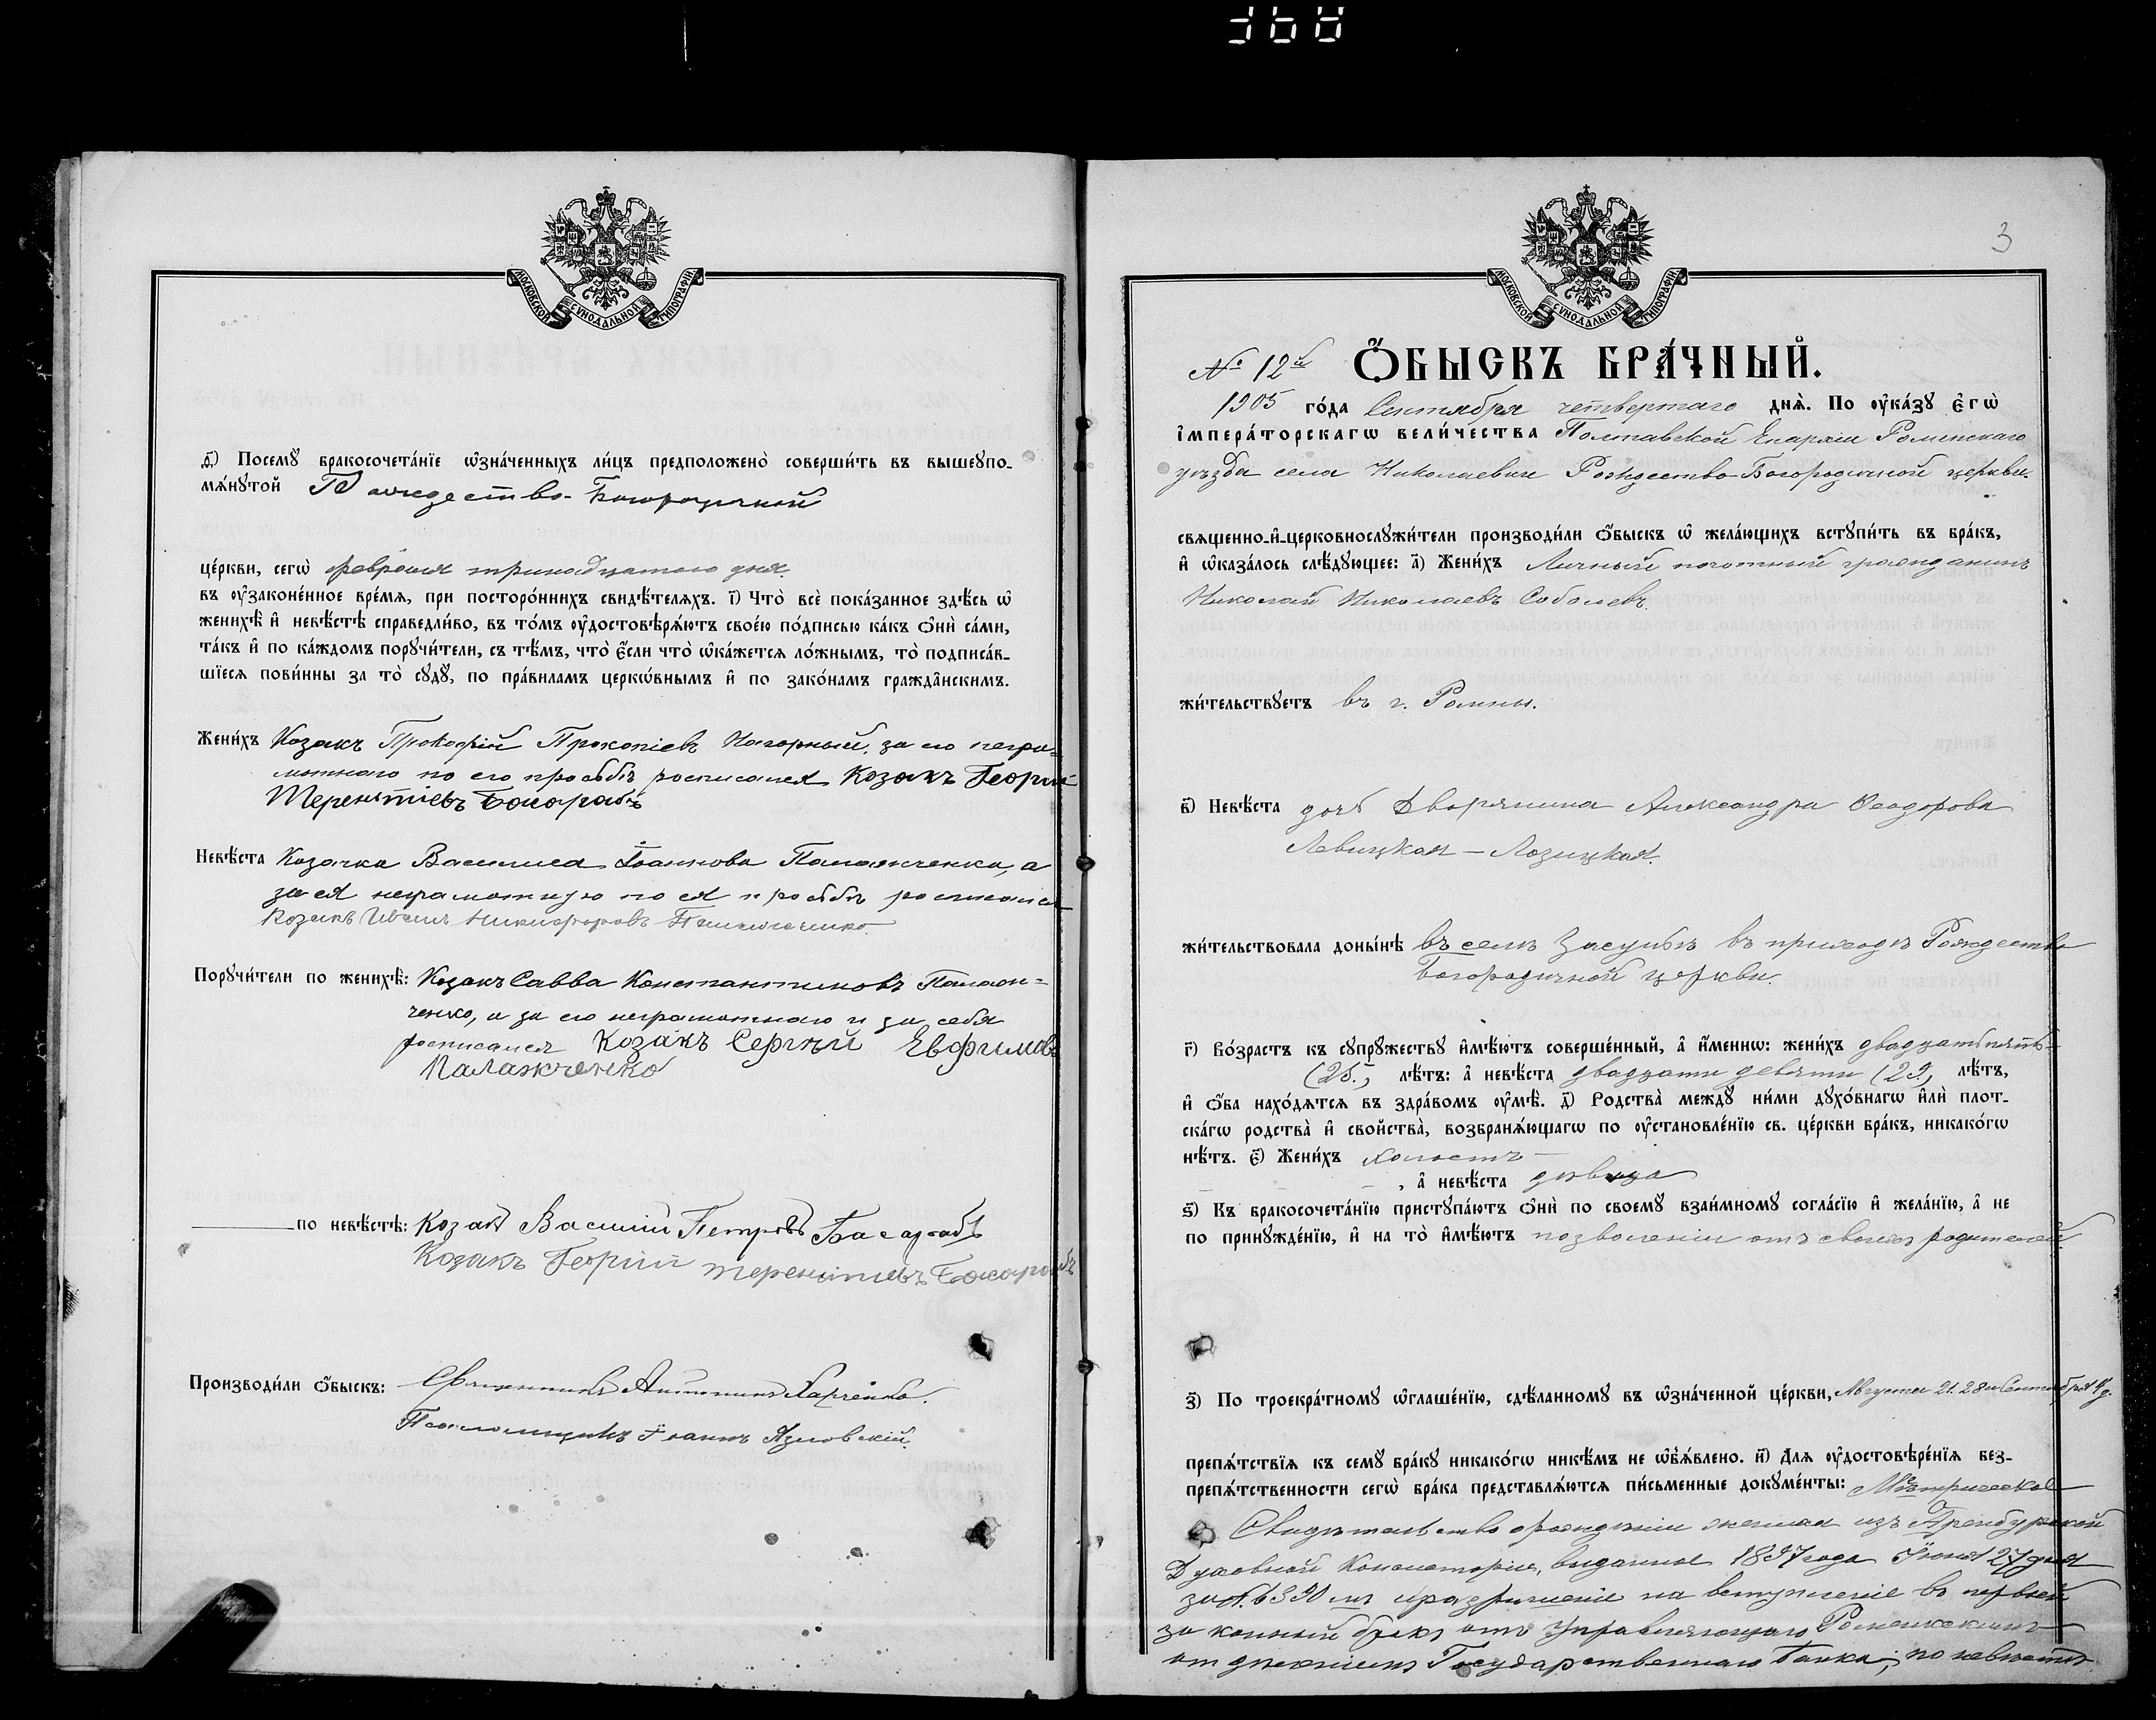 МОСКОВСКОЙ СѴНОДАЛЬНОЙ ТИПОГРАФІИ
ѳ҃) Посемꙋ бракосочета́нїе ѡ҆зна́ченныхъ ли́цъ предположено̀ соверши́ть въ вышеꙋпо-
мѧ́нꙋтой Рождество-Богородичной
це́ркви, сегѡ̀ февраля тринадцатаго дня.
въ ᲂу҆законе́нное вре́мѧ, при посторо́ннихъ свидѣ́телѧхъ. і҃) Что̀ всѐ пока́занное здѣ́сь ѡ҆
женихѣ̀ и҆ невѣ́стѣ справедли́во, въ то́мъ ᲂу҆достовѣрѧ́ютъ свое́ю по́дписью ка́къ ѻ҆нѝ са́ми,
та́къ и҆ по ка́ждомъ порꙋчи́тели, съ тѣ́мъ, что̀ є҆́сли что̀ ѡ҆ка́жетсѧ ло́жнымъ, то̀ подписа́в-
шїесѧ пови́нны за то̀ сꙋдꙋ̀, по пра́виламъ церкѡ́внымъ и҆ по зако́намъ гражда́нскимъ.
Жени́хъ Козакъ Прокофій Прокопіевъ Нагорный, за его негра-
мотнаго по его просьбѣ росписался Козакъ Георгій
Терентіевъ Басарабъ
Невѣ́ста Козачка Василиса Іоаннова Палажченко, а
за ея неграмотную по ея просьбѣ росписался
Козакъ Иванъ Никифоровъ Палажченко
Порꙋчи́тели по женихѣ̀: Козакъ Савва Константиновъ Палаж-
ченко, а за его неграмотнаго и за себя
росписался Козакъ Сергѣй Евфимовъ
Палажченко
по невѣ́стѣ: Козакъ Василій Петровъ Басарабъ
Козакъ Георгій Терентіевъ Басарабъ
Производи́ли ѻ҆́быскъ: Священникъ Антонинъ Харченко.
Псаломщикъ Іоаннъ Язловскій.
3
МОСКОВСКОЙ СѴНОДАЛЬНОЙ ТИПОГРАФІИ
№ 12й Ѻ҆́БЫСКЪ БРА́ЧНЫЙ.
1905 го́да Сентября четвертаго днѧ̀. По ᲂу҆ка́зꙋ є҆гѡ̀
і҆мпера́торскагѡ вели́чества Полтавской Епархіи Роменскаго
уѣзда села Николаевки Рождество-Богородичной церкви.
свѧщенно-и҆-церковнослꙋжи́тели производи́ли ѻ҆́быскъ ѡ҆ жела́ющихъ встꙋпи́ть въ бра́къ,
и҆ ѡ҆каза́лось слѣ́дꙋющее: а҃) Жени́хъ Личный почотный гражданинъ
Николай Николаевъ Соболевъ.
жи́тельствꙋетъ въ г. Ромны.
в҃) Невѣ́ста дочь Дворянина Александра Ѳеодорова
Левицкая - Лозицкая.
жи́тельствовала доны́нѣ въ селѣ Засульѣ въ приходѣ Рождество
Богородичной церкви.
г҃) Во́зрастъ къ сꙋпрꙋ́жествꙋ и҆мѣ́ютъ соверше́нный, а҆ и҆́менно: жени́хъ двадцать пять-
(25.) лѣ́тъ: а҆ невѣ́ста двадцати девяти (29.) лѣ́тъ,
и҆ ѻ҆́ба нахо́дѧтсѧ въ здра́вомъ ᲂу҆мѣ̀. д҃) Родства̀ междꙋ ни́ми дꙋхо́внагѡ и҆лѝ плот-
ска́гѡ родства̀ и҆ свойства̀, возбранѧ́ющагѡ по ᲂу҆становле́нїю св. це́ркви бра́къ, никако́гѡ
нѣ́тъ. є҃) Жени́хъ холостъ
, а҆ невѣ́ста дѣвица
ѕ҃) Къ бракосочета́нїю пристꙋпа́ютъ ѻ҆нѝ по своемꙋ̀ взаи́мномꙋ согла́сїю и҆ жела́нїю, а҆ не
по принꙋжде́нїю, и҆ на то̀ и҆мѣ́ютъ позволеніи отъ своихъ родителей.
з҃) По троекра́тномꙋ ѡ҆глаше́нїю, сдѣ́ланномꙋ въ ѡ҆зна́ченной це́ркви, Августа 21. 28 и Сентября 4 д.
препѧ́тствїѧ къ семꙋ̀ бра́кꙋ никако́гѡ никѣ́мъ не ѡ҆б̾ѧ́влено. и҃) Длѧ ᲂу҆достовѣре́нїѧ без-
препѧ́тственности сегѡ̀ бра́ка представлѧ́ютсѧ пи́сьменные докꙋме́нты: Метрическое
Свидѣтельство о рожденіи жениха изъ Оренбургской
Духовной Консисторіи, выданное 1897 года Іюня 27 дня
за № и разрѣшеніе на вступленіе въ первый
законный бракъ отъ Управляющаго Роменскимъ
отдѣленіемъ Государственнаго Банка; по невѣстѣ